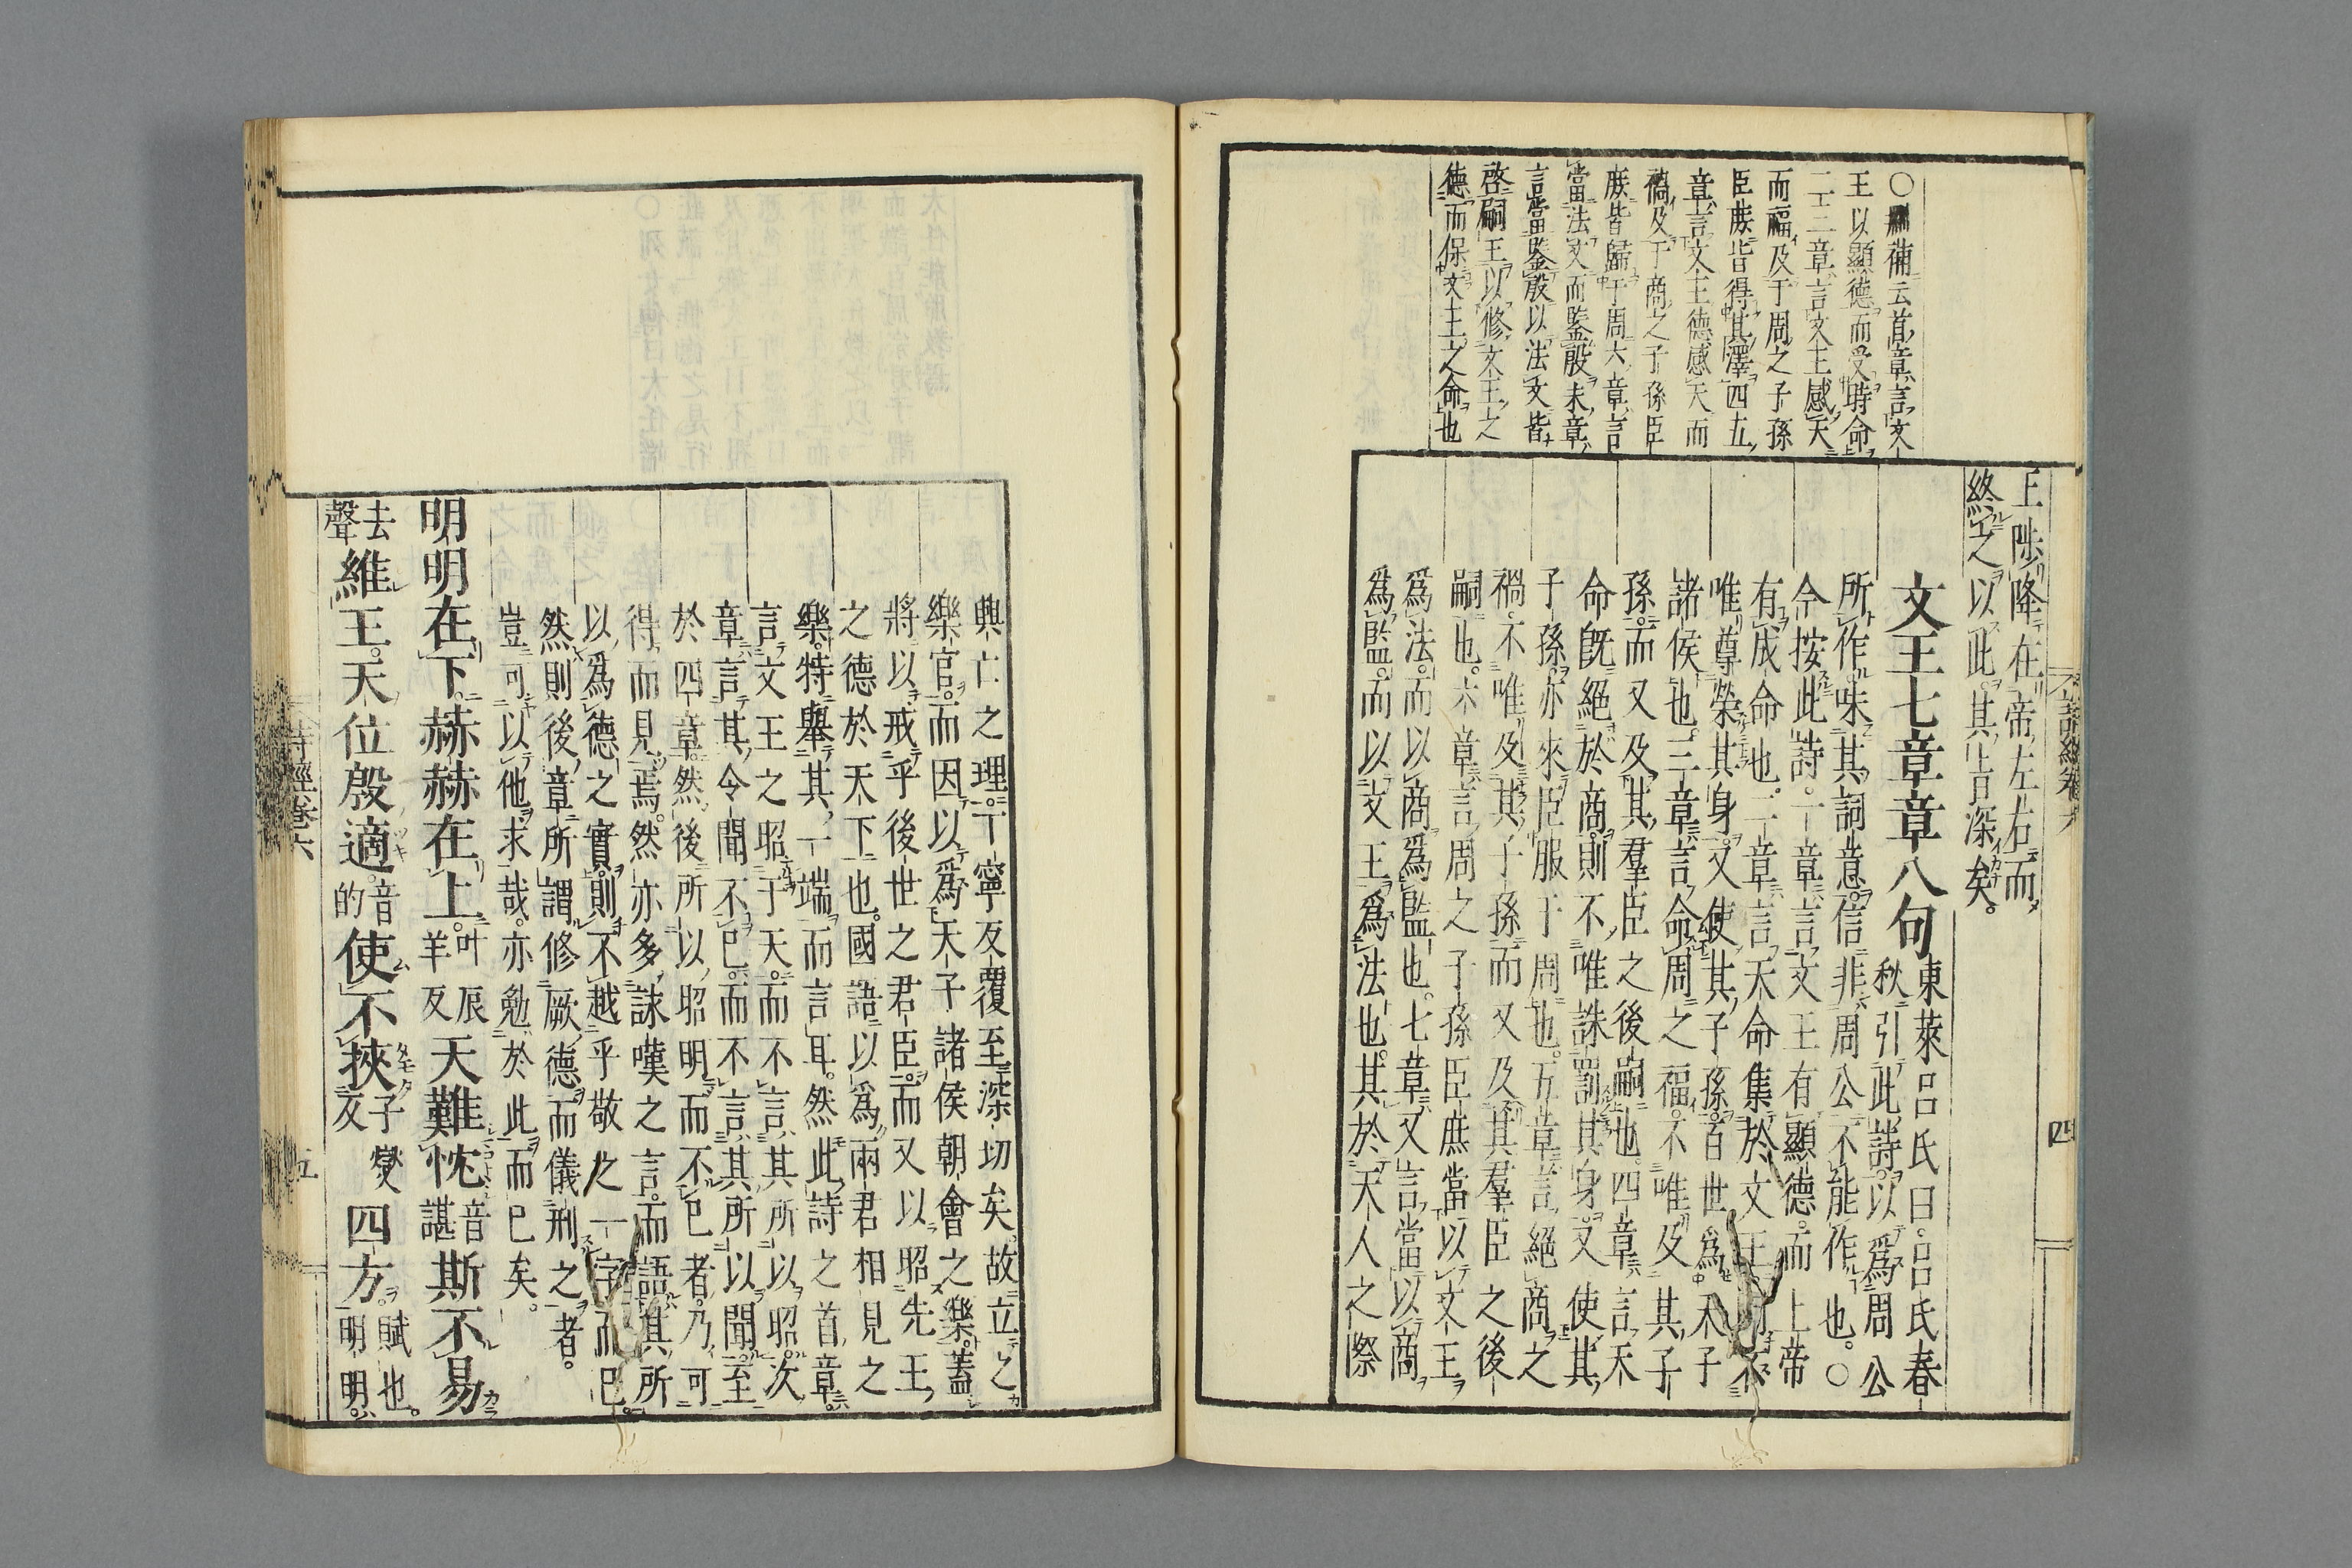 ○黼補云首章言文
王以顯德而受時命
二三章言文王感天
而福及于周之子孫
臣族皆得其澤四五
章言文王德感天而
禍及于商之子孫臣
族皆歸于周六章言
當法文而鑒殷末章
言當鑒殷以法文皆
啓嗣王以修文王之
德而保文王之命也
王陟降在帝左右而
終之以此其旨深矣
文王七章章八句
東萊呂氏曰呂氏春
秋引此詩以爲周公
所作味其詞意信非周公不能作也○
今按此詩一章言文王有顯德而上帝
有成命也二章言天命集於文王則不
唯尊榮其身又使其子孫百世爲天子
諸侯也三章言命周之福不唯及其子
孫而又及其羣臣之後嗣也四章言天
命既絕於商則不唯誅罰其身又使其
子孫亦來臣服于周也五章言絕商之
禍不唯及其子孫而又及其羣臣之後
嗣也六章言周之子孫臣庶當以文王
爲法而以商爲監也七章又言當以商
爲監而以文王爲法也其於天人之際
四
興亡之理丁寧反覆至深切矣故立之
樂官而因以爲天子諸侯朝會之樂蓋
將以戒乎後世之君臣而又以昭先王
之德於天下也國語以爲兩君相見之
樂特舉其一端而言耳然此詩之首章
言文王之昭于天而不言其所以昭次
章言其令聞不已而不言其所以聞至
於四章然後所以昭明而不已者乃可
得而見焉然亦多詠嘆之言而語其所
以爲德之實則不越乎敬之一字而已
然則後章所謂修厥德而儀刑之者
豈可以他求哉亦勉於此而已矣
明明在下赫赫在上叶辰羊反天難忱音諶斯不易
去聲維王天位殷適音的使不挾子燮反四方賦也明明
詩經卷六
五